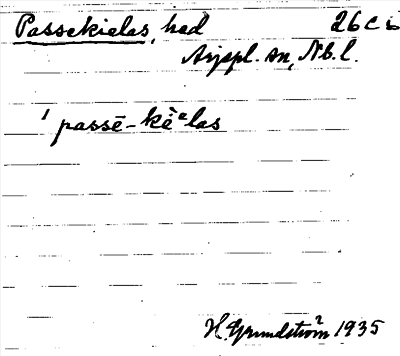 Passekielas, hed 26C6
Arjepl. sn, Nb. l.
' passē-kēᵉlas
H. Grundström 1935